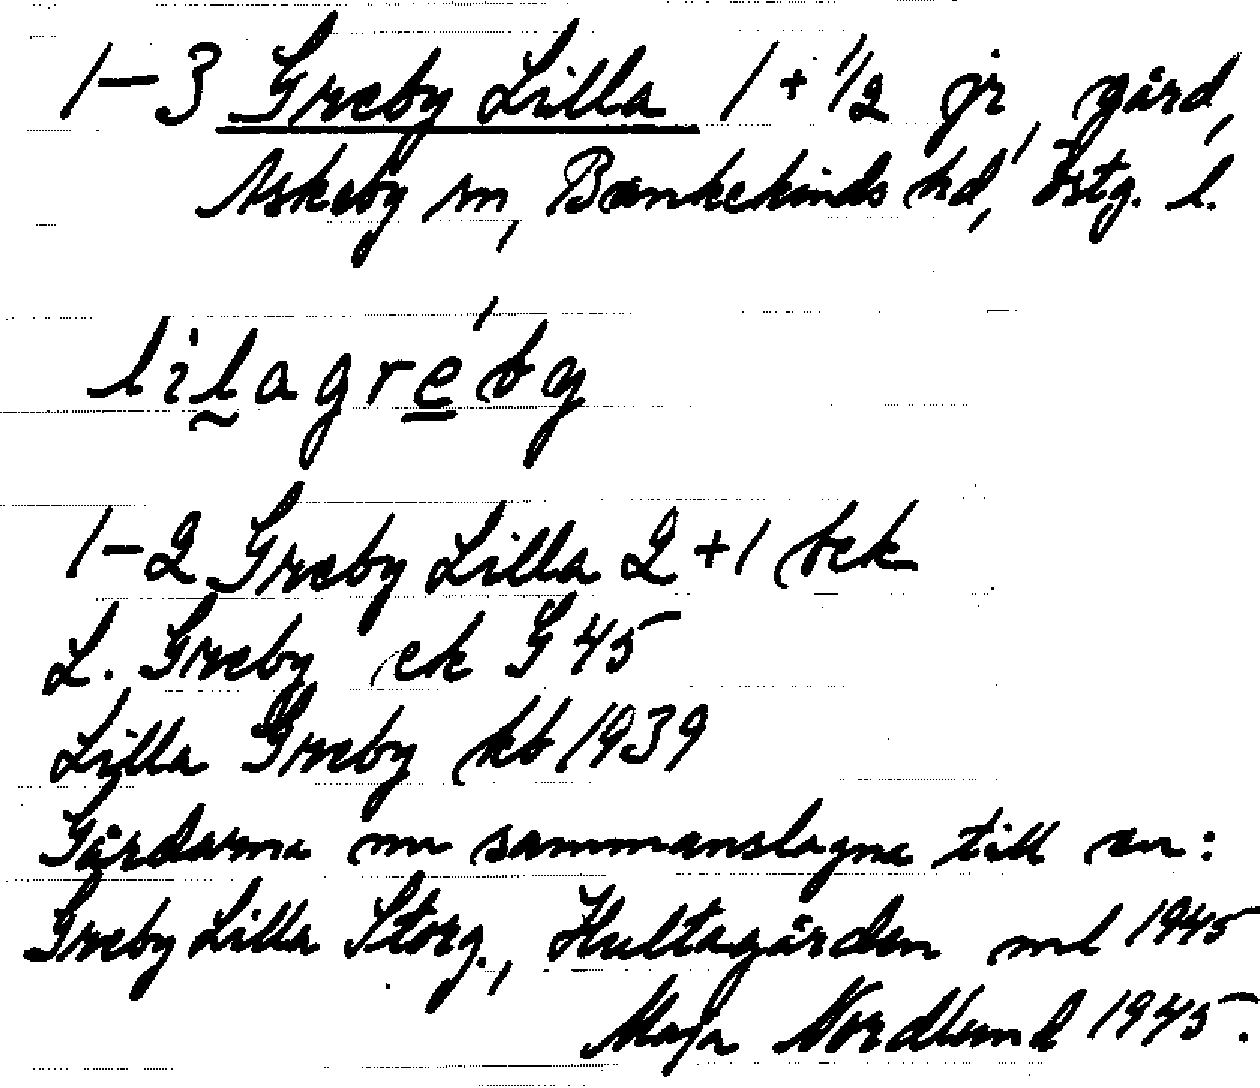 1-3 Greby Lilla 1 + 1/2 jr, gård,
Askeby sn, Bankekinds hd, Östg. l.
lilagre´by
1-2 Greby Lilla 2 + 1 bek
L. Greby ek G 45
Lilla Greby kb 1939
Gårdarna nu sammanslagna till en:
Greby Lilla Storg., Hultagården ml 1945
Maja Nordlund 1945.